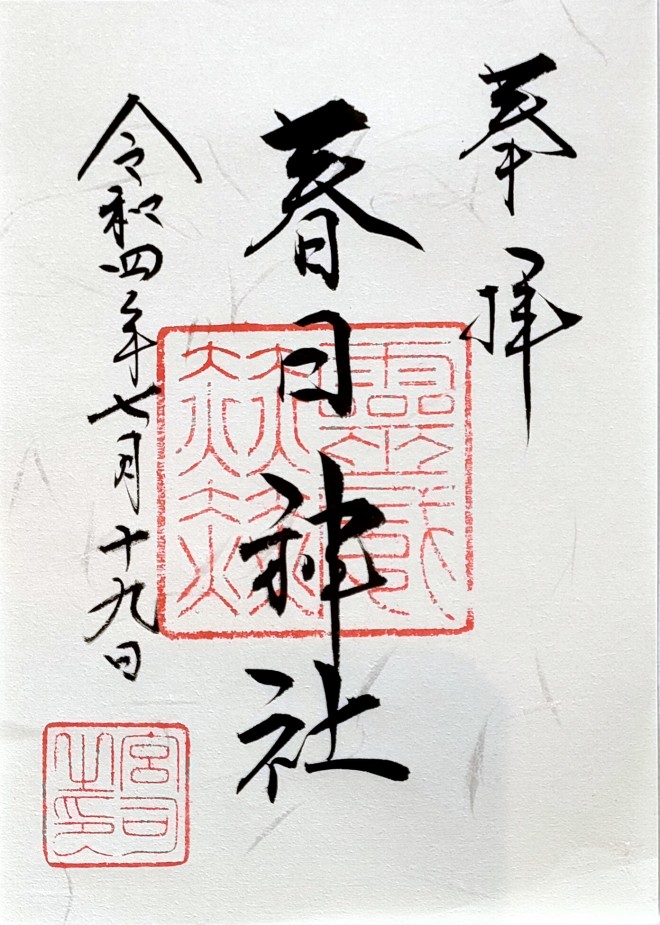 奉拝
春日神社
令和四年七月十九日
宮司
之印